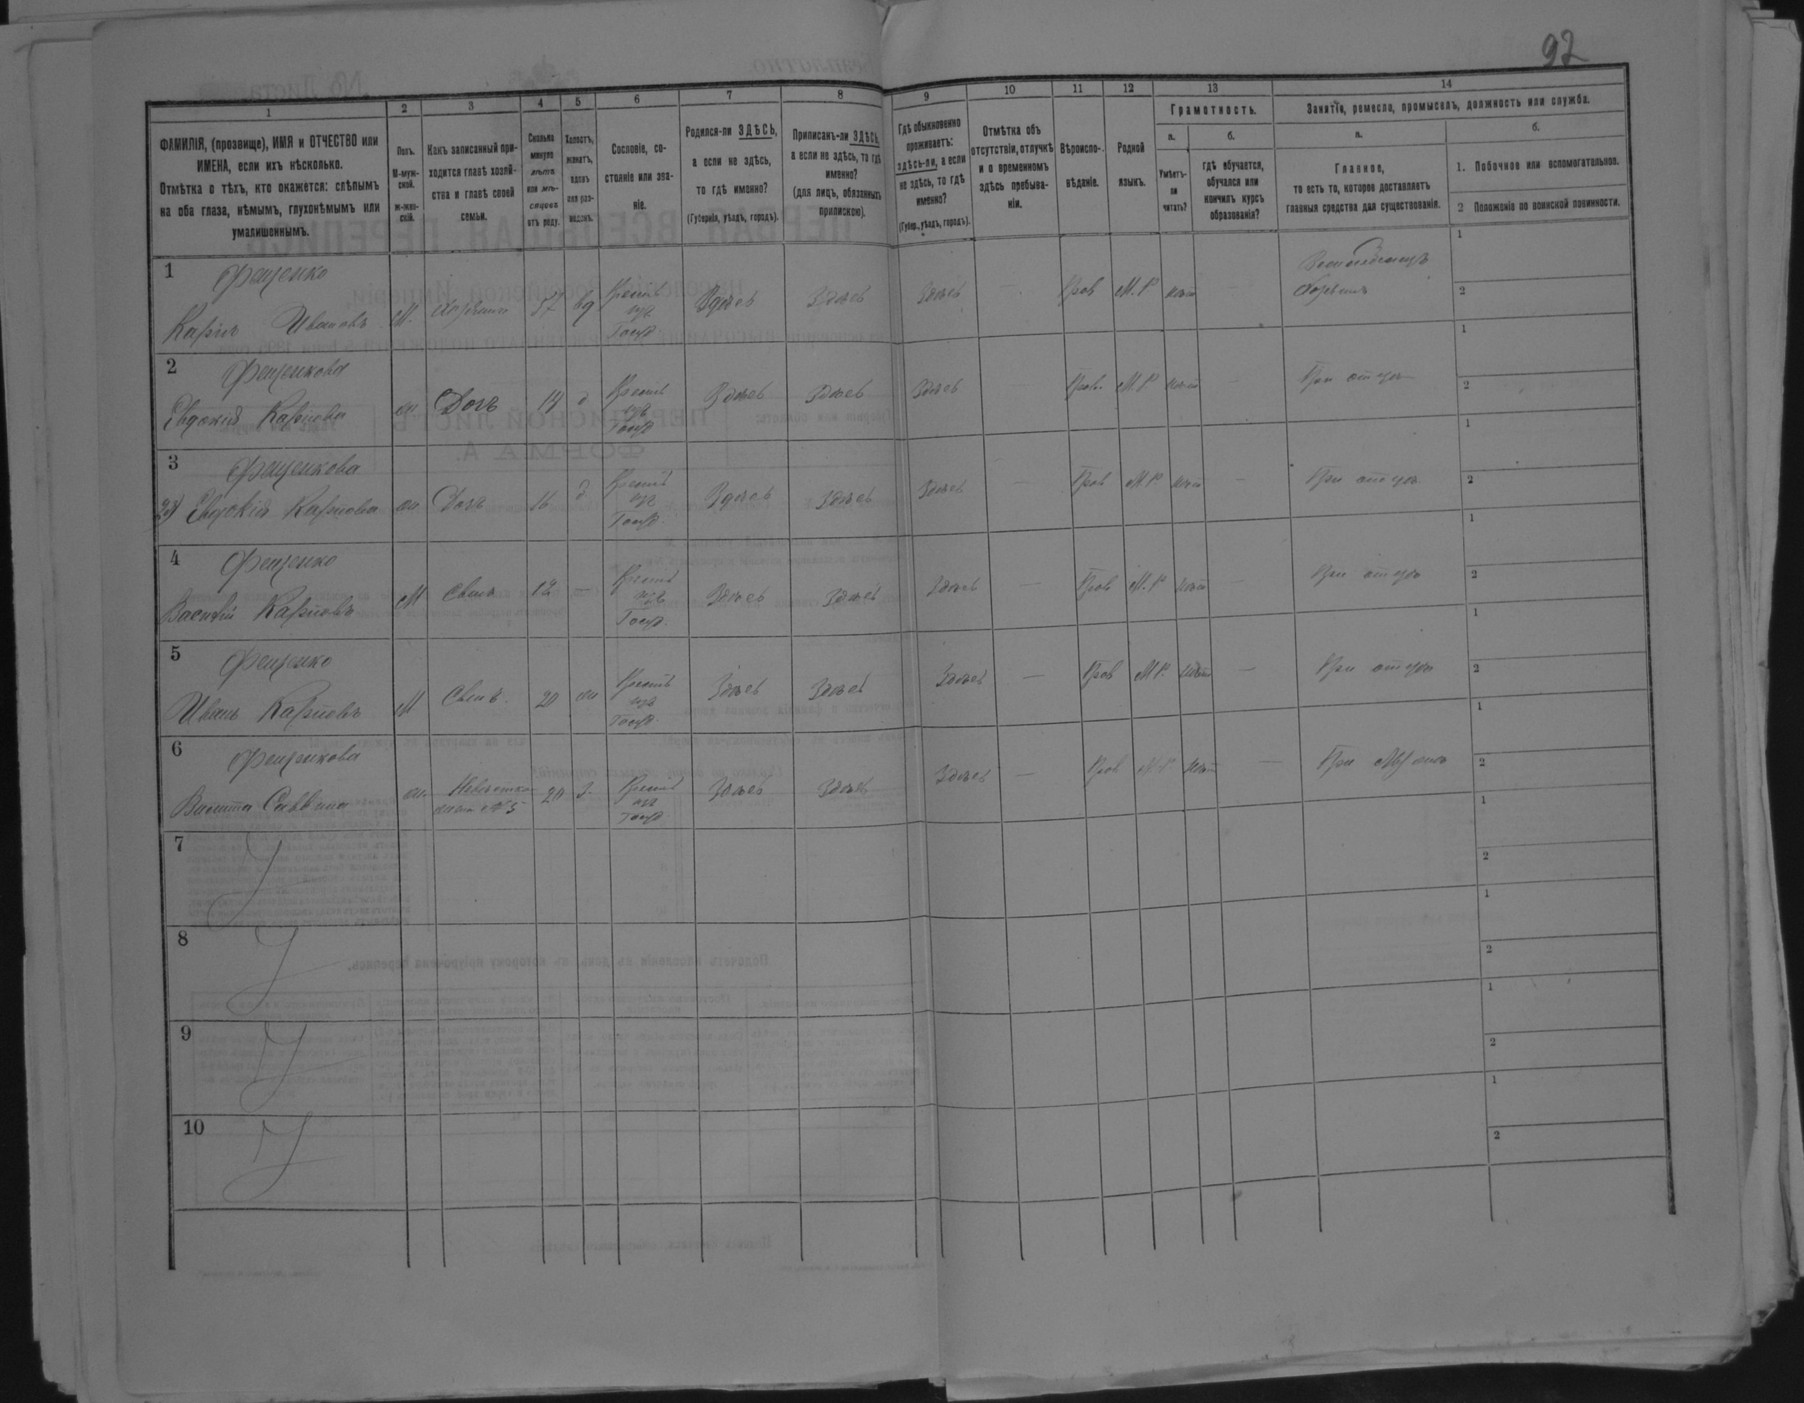 92
1 2 3 4 5 6 7 8 9 10 11 12 13 14
ФАМИЛІЯ, (прозвище), ИМЯ и ОТЧЕСТВО или
ИМЕНА, если ихъ нѣсколько.
Отмѣтка о тѣхъ, кто окажется: слѣпымъ
на оба глаза, нѣмымъ, глухонѣмымъ или
умалишеннымъ.
Полъ.
М-муж-
ской.
ж-жен-
скій.
Какъ записанный при-
ходится главѣ хозяй-
ства и главѣ своей
семьи.
Сколько
минуло
лѣтъ
или мѣ-
сяцевъ
отъ роду.
Холостъ,
женатъ,
вдовъ
или раз-
веденъ.
Сословіе, со-
стояніе или зва-
ніе.
Родился-ли ЗДѢСЬ,
а если не здѣсь,
то гдѣ именно?
(Губернія, уѣздъ, городъ).
Приписанъ-ли ЗДѢСЬ,
а если не здѣсь, то гдѣ
именно?
(для лицъ, обязанныхъ
припискою).
Гдѣ обыкновенно
проживаетъ:
здѣсь-ли, а если
не здѣсь, то гдѣ
именно?
(Губер., уѣздъ, городъ).
Отмѣтка объ
отсутствіи, отлучкѣ
и о временномъ
здѣсь пребыва-
ніи.
Вѣроиспо-
вѣданіе.
Родной
языкъ.
Грамотность.
а.
Умѣетъ-
ли
читать?
б.
гдѣ обучается,
обучался или
кончилъ курсъ
образованія?
Занятіе, ремесло, промыселъ, должность или служба.
а.
Главное,
то есть то, которое доставляетъ
главныя средства для существованія.
б.
1. Побочное или вспомогательное.
2 Положеніе по воинской повинности.
1 Фещенко
Карпъ Ивановъ М. Хозяинъ 57 вд Крестъ изъ Госуд Здѣсь Здѣсь Здѣсь — Прав М.Р нѣт — Земледѣлецъ Хозяинъ 1 2
2 Фещенкова
Евдокія Карпова ж Дочь 14 д Крестъ изъ Госуд Здѣсь Здѣсь Здѣсь — Прав. М.Р нѣт — При отцѣ 1 2
3 Фещенкова
2я) Евдокія Карпова ж Дочь 16 д Крестъ изъ Госуд. Здѣсь Здѣсь Здѣсь — Прав М.Р нѣт — При отцѣ 1 2
4 Фещенко
Василій Карповъ М Сынъ 12 — Крестъ изъ Госуд. Здѣсь Здѣсь Здѣсь — Прав М.Р нѣт — При отцѣ 1 2
5 Фещенко
Иванъ Карповъ М Сынъ. 20 ж Крестъ изъ Госуд. Здѣсь Здѣсь Здѣсь — Прав М.Р. нѣт — При отцѣ 1 2
6 Фещенкова
Саввина ж Невѣстка жена №5 20 з. Крестъ изъ Госуд Здѣсь Здѣсь Здѣсь — Прав М.Р нѣт — При мужѣ 1 2
7 1 2
8 1 2
9 1 2
10 1 2